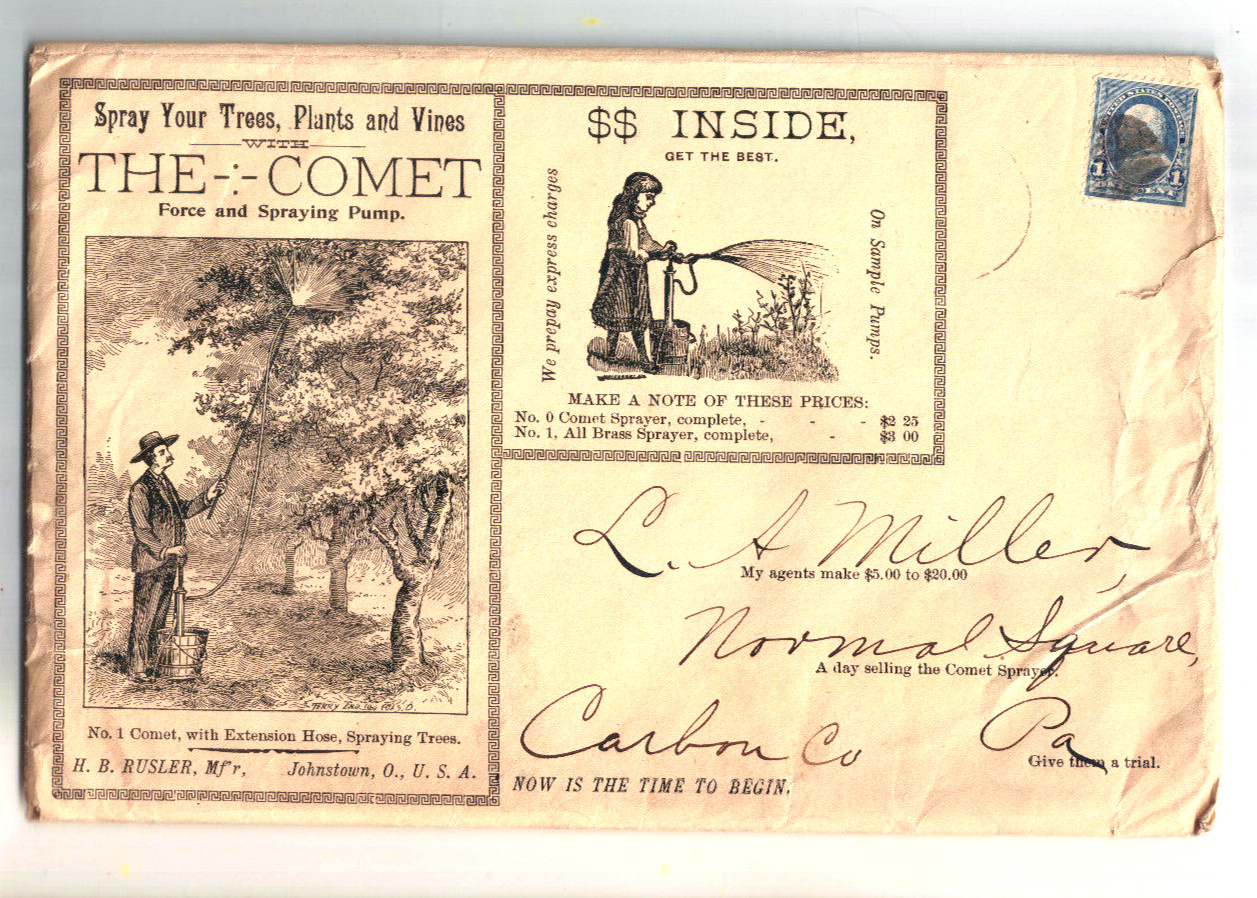 Spray Your Trees, Plants and Vines
WITH
THE COMET
Force and Spraying Pump.
No. 1 Comet, with Extension Hose, Spraying Trees.
H. B. RUSLER, Mf'r, Johnstown, O., U. S. A.
$$ INSIDE,
GET THE BEST.
We prepay express charges
On Sample Pumps.
MAKE A NOTE OF THESE PRICES:
No. 0 Comet Sprayer, complete, - - - $2 25
No. 1, All Brass Sprayer, complete, - $3 00
UNITED STATES POSTAGE
1 1
ONE CENT
L. A Miller,
My agents make $5.00 to $20.00
Normal Square,
A day selling the Comet Sprayer.
Carbon Co Pa
Give them a trial.
NOW IS THE TIME TO BEGIN.